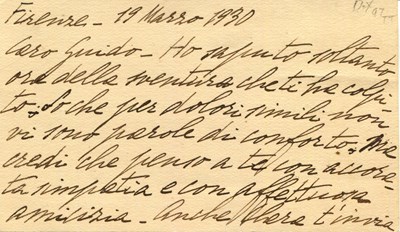 Firenze - 19 Marzo 1930
Caro Guido - Ho saputo soltanto
ora della sventura che ti ha colpi-
to. So che per dolori simili non
vi sono parole di conforto. Ma
credi che penso a te con accora-
ta simpatia e con affettuosa
amicizia - Anche t'invia